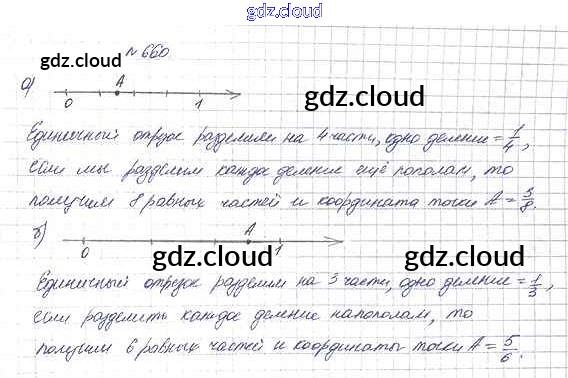 gdz.cloud
№ 660
gdz.cloud
а) 0 A 1
gdz.cloud
Единичный отрезок разделили на 4 части, одно деление = 1/4,
если мы разделим каждое деление ещё пополам, то
получим 8 равных частей и координата точки A = 3/8.
б) 0 A 1
gdz.cloud gdz.cloud
Единичный отрезок разделили на 3 части, одно деление = 1/3,
если разделить каждое деление напополам, то
получим 6 равных частей и координаты точки A = 5/6.
gdz.cloud gdz.cloud